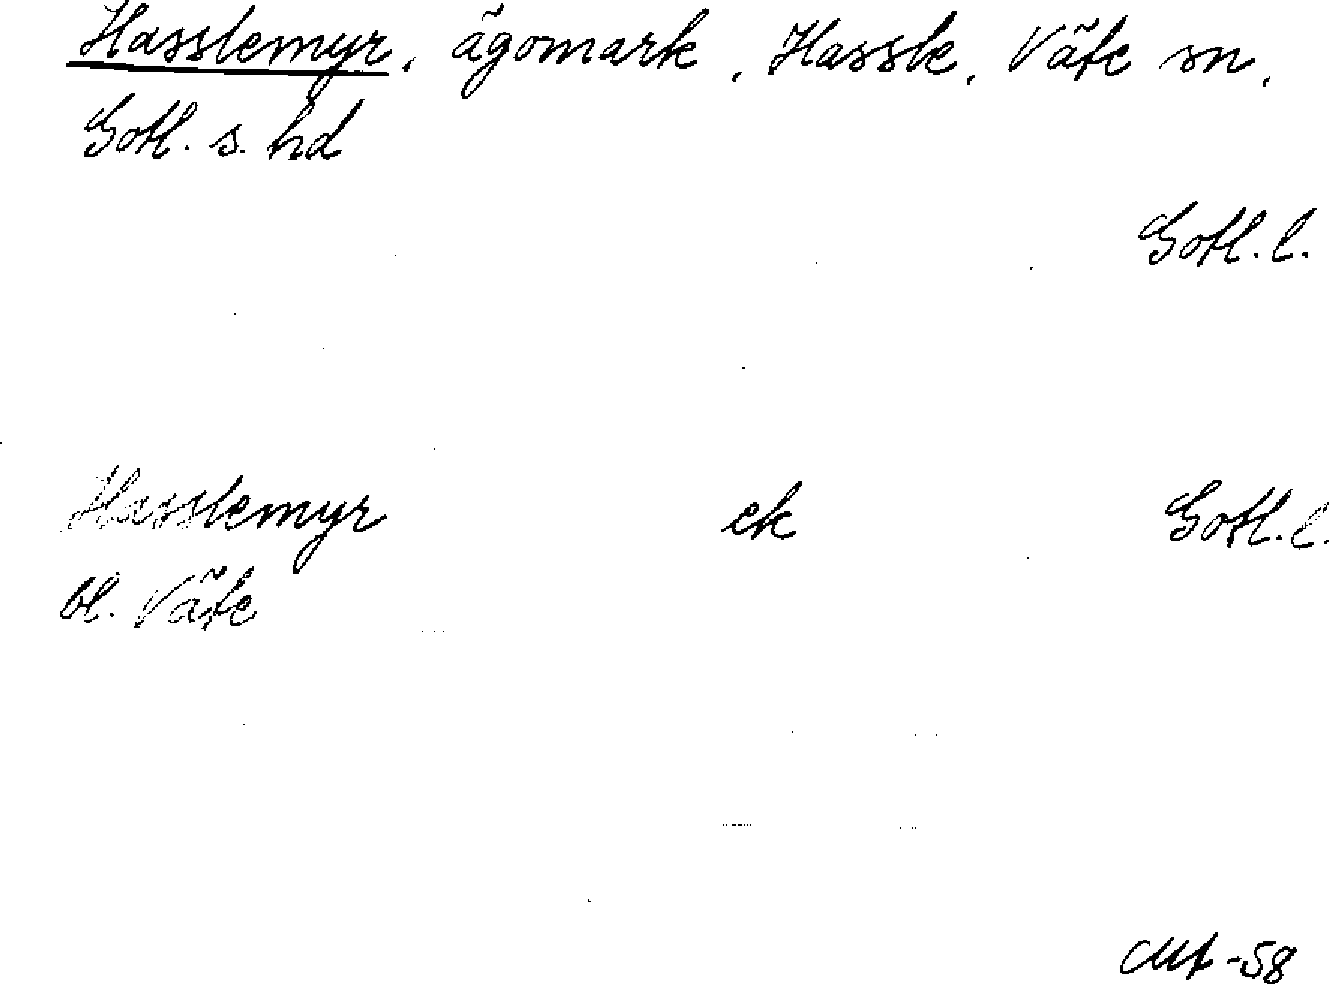 Hasslemyr, ägomark, Hassle, Väte sn,
Gotl. s. hd
Gotl. l.
Hasslemyr ek Gotl. l.
bl. Väte
-58